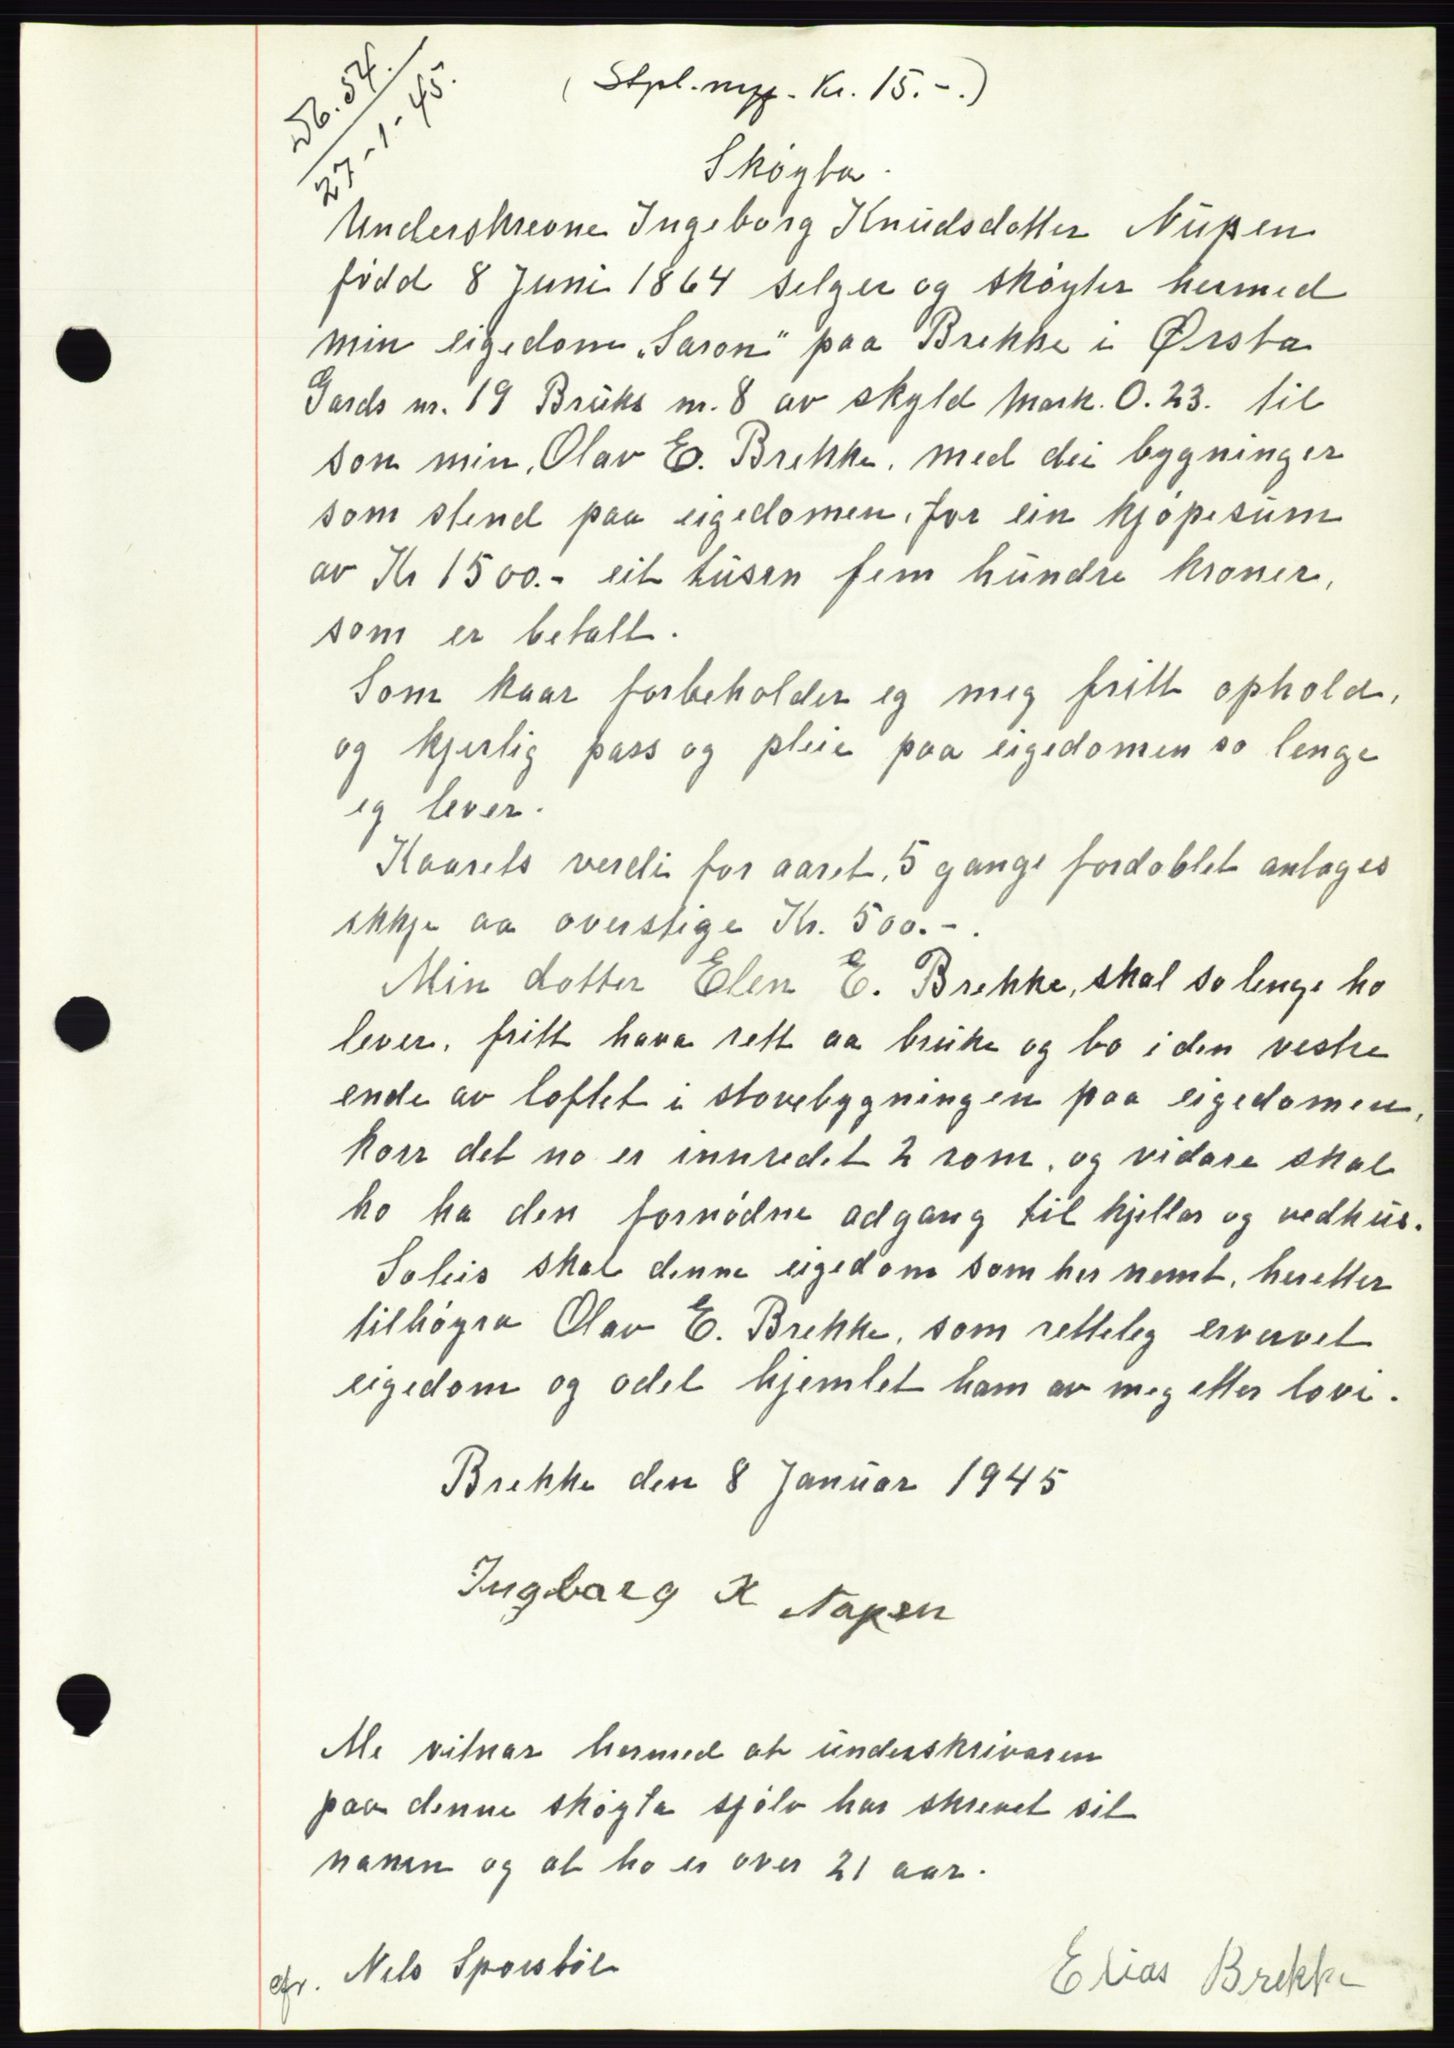 Db. 54.
27-1-45.
(Stpl.merk. Kr. 15.-.)
Skøyta.
Underskrevne Ingeborg Knudsdotter Nupen
född 8 Juni 1864 selger og skøyter hermed
min eigedom „Saron" paa Brekke i Ørsta
Gards nr. 19 Bruks nr. 8 av skyld Mark. 0.23. til
son min, Olav E. Brekke, med dei bygninger
som stend paa eigedomen, for ein kjøpesum
av Kr 1500.- eit tusen fem hundre kroner,
som er betalt.
Som kaar forbeholder eg meg fritt ophold,
og kjerlig pass og pleie paa eigedomen so lenge
eg lever.
Kaarets verdi for aaret, 5 gange fordoblet antages
ikkje aa overstige Kr. 500.-.
Min dotter Elen E. Brekke, skal so lenge ho
lever, fritt hava rett aa bruke og bo i den vestre
ende av loftet i stovebygningen paa eigedomen,
korr det no er innredet 2 rom, og vidare skal
ho ha den fornødne adgang til kjellar og vedhus.
Soleis skal denne eigedom som her nemt, heretter
tilhøyra Olav E. Brekke, som retteleg ervervet
eigedom og odel hjemlet ham av meg etter lovi.
Brekke den 8 Januar 1945
Ingeborg K Nupen
Me vitnar hermed at underskrivaren
paa denne skøyta sjølv har skrevet sit
namn og at ho er over 21 aar.
Nils Sporstøl
Elias Brekke